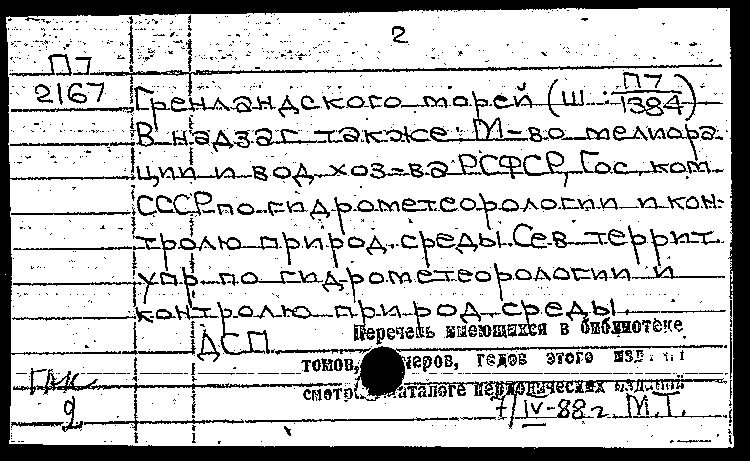 2
П7
2167
Гренландского морей (Ш. П7
1384)
В надзаг также: М-во мелиора-
ции и вод. хоз-ва РСФСР, Гос. ком.
СССР по гидрометеорологии и кон-
тролю природ. среды. Сев. террит.
упр. по гидрометеорологии и
контролю природ. среды.
ДСП
Перечень имеющихся в библиотеке
томов, номеров, годов этого изданий
смотри каталоге периодических изданий
7/IV-88 г. М.Т.
2